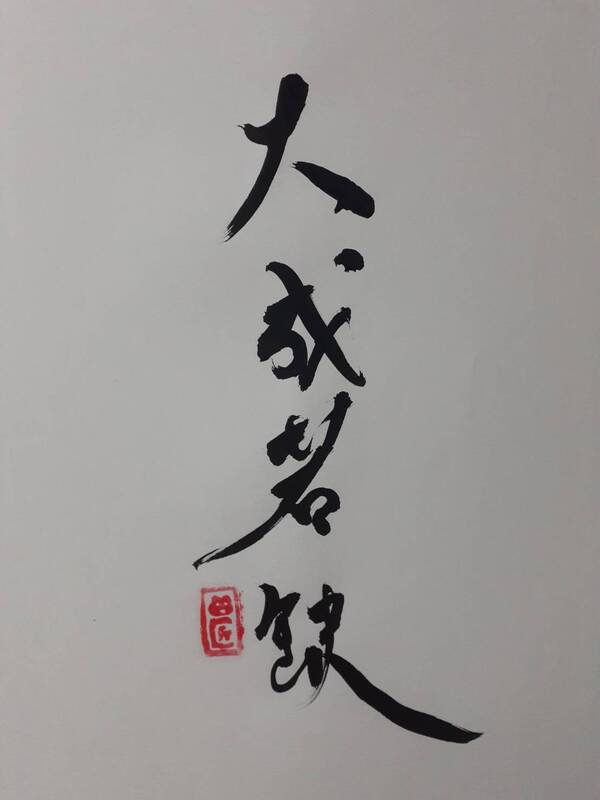 大成若缺